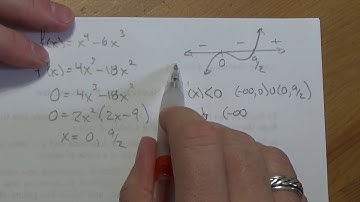 f(x)=x⁴-6x³
f'(x)=4x³-18x²
0=4x³-18x²
0=2x²(2x-9)
x=0, 9/2
- - +
0 9/2
'(x)<0 (-∞,0)∪(0,9/2)
(-∞